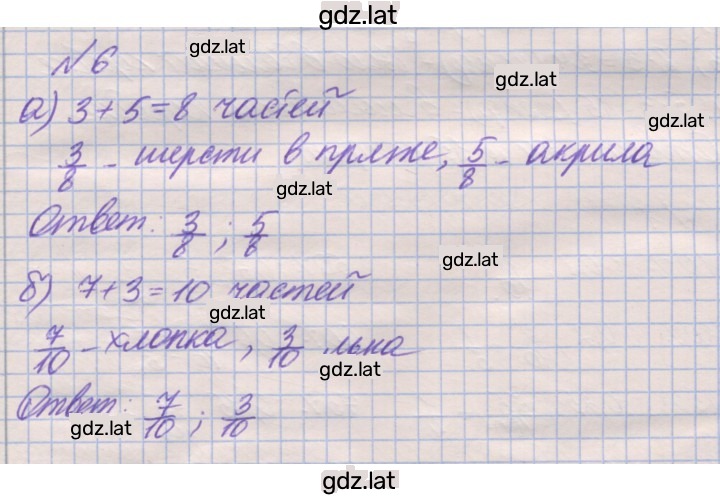 gdz.lat
№ 6
gdz.lat
gdz.lat
а) 3 + 5 = 8 частей
gdz.lat
3/8 - шерсти в пряже, 5/8 - акрила
gdz.lat
Ответ: 3/8 ; 5/8
gdz.lat
б) 7 + 3 = 10 частей
gdz.lat
7/10 - хлопка, 3/10 льна
gdz.lat
Ответ: 7/10 ; 3/10
gdz.lat
gdz.lat